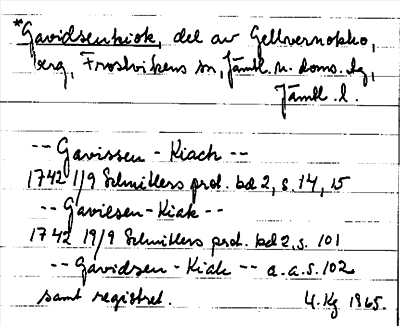 *Gavidsenkiok, del av Gellvernokko,
berg, Frostvikens sn, Jämtl. n. doms. lg,
Jämtl. l.
-- Gavissen - Kiach --
1742 1/9 Schnitlers prot. bd 2, s. 14, 15
-- Gavilsen - Kiak --
1742 19/9 Schnitlers prot. bd 2, s. 101
-- Gavidsen - Kiak -- a.a.s. 102
samt registret. 4. Kg 1965.